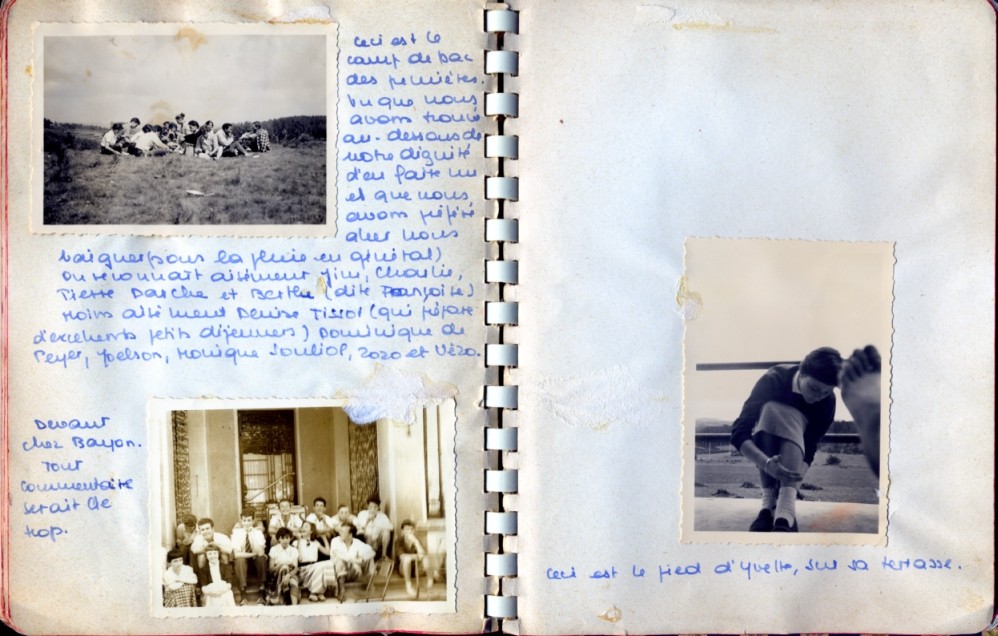 Ceci est le
camp de bac
des premières.
Vu que nous
avons trouvé
au-dessous de
notre dignité
d'en faire un
et que nous
avons préféré
aller nous
baigner (sous la pluie en général)
On reconnaît aisément Jim, Charlie,
Pierre Dasche et Berthe (dite Françoise)
Moins aisément Denise Tissot (qui prépare
d'excellents petits déjeuners) Dominique de
Peyer, Joelson, Monique Souliol, Zozo et Vézo.
Devant
chez Bayon.
Tout
commentaire
serait de
trop.
Ceci est le pied d'Yvette, sur sa terrasse.